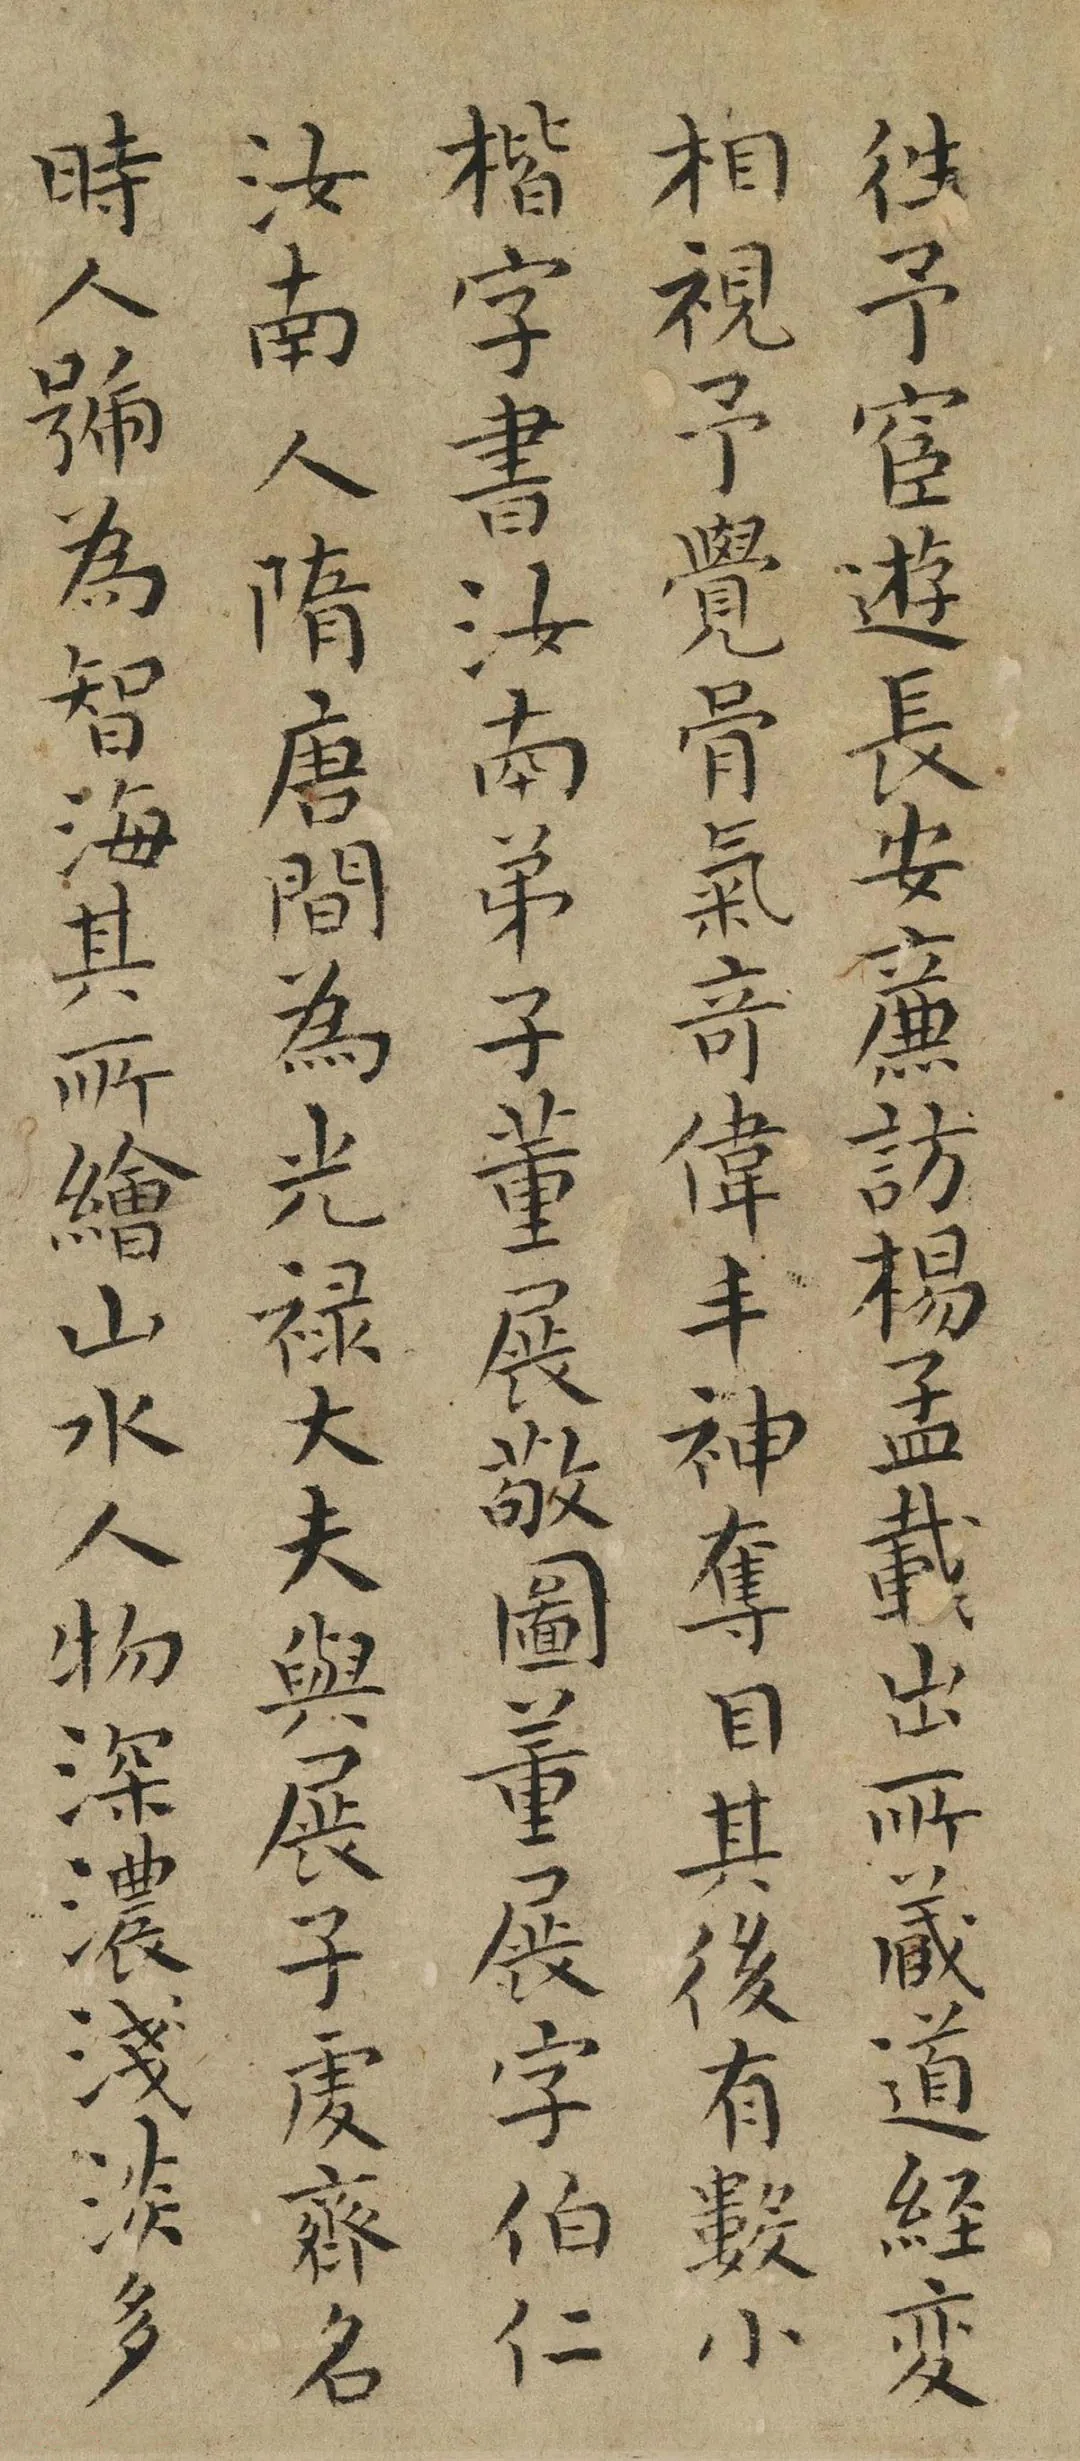 徃予宦遊長安廉訪楊孟載出所蔵道経変
相視予覺骨氣竒偉丰神奪目其後有數小
楷字書汝南弟子董展敬圖董展字伯仁
汝南人隋唐間為光禄大夫與展子虔齊名
時人號為智海其所繪山水人物深濃淺淡多